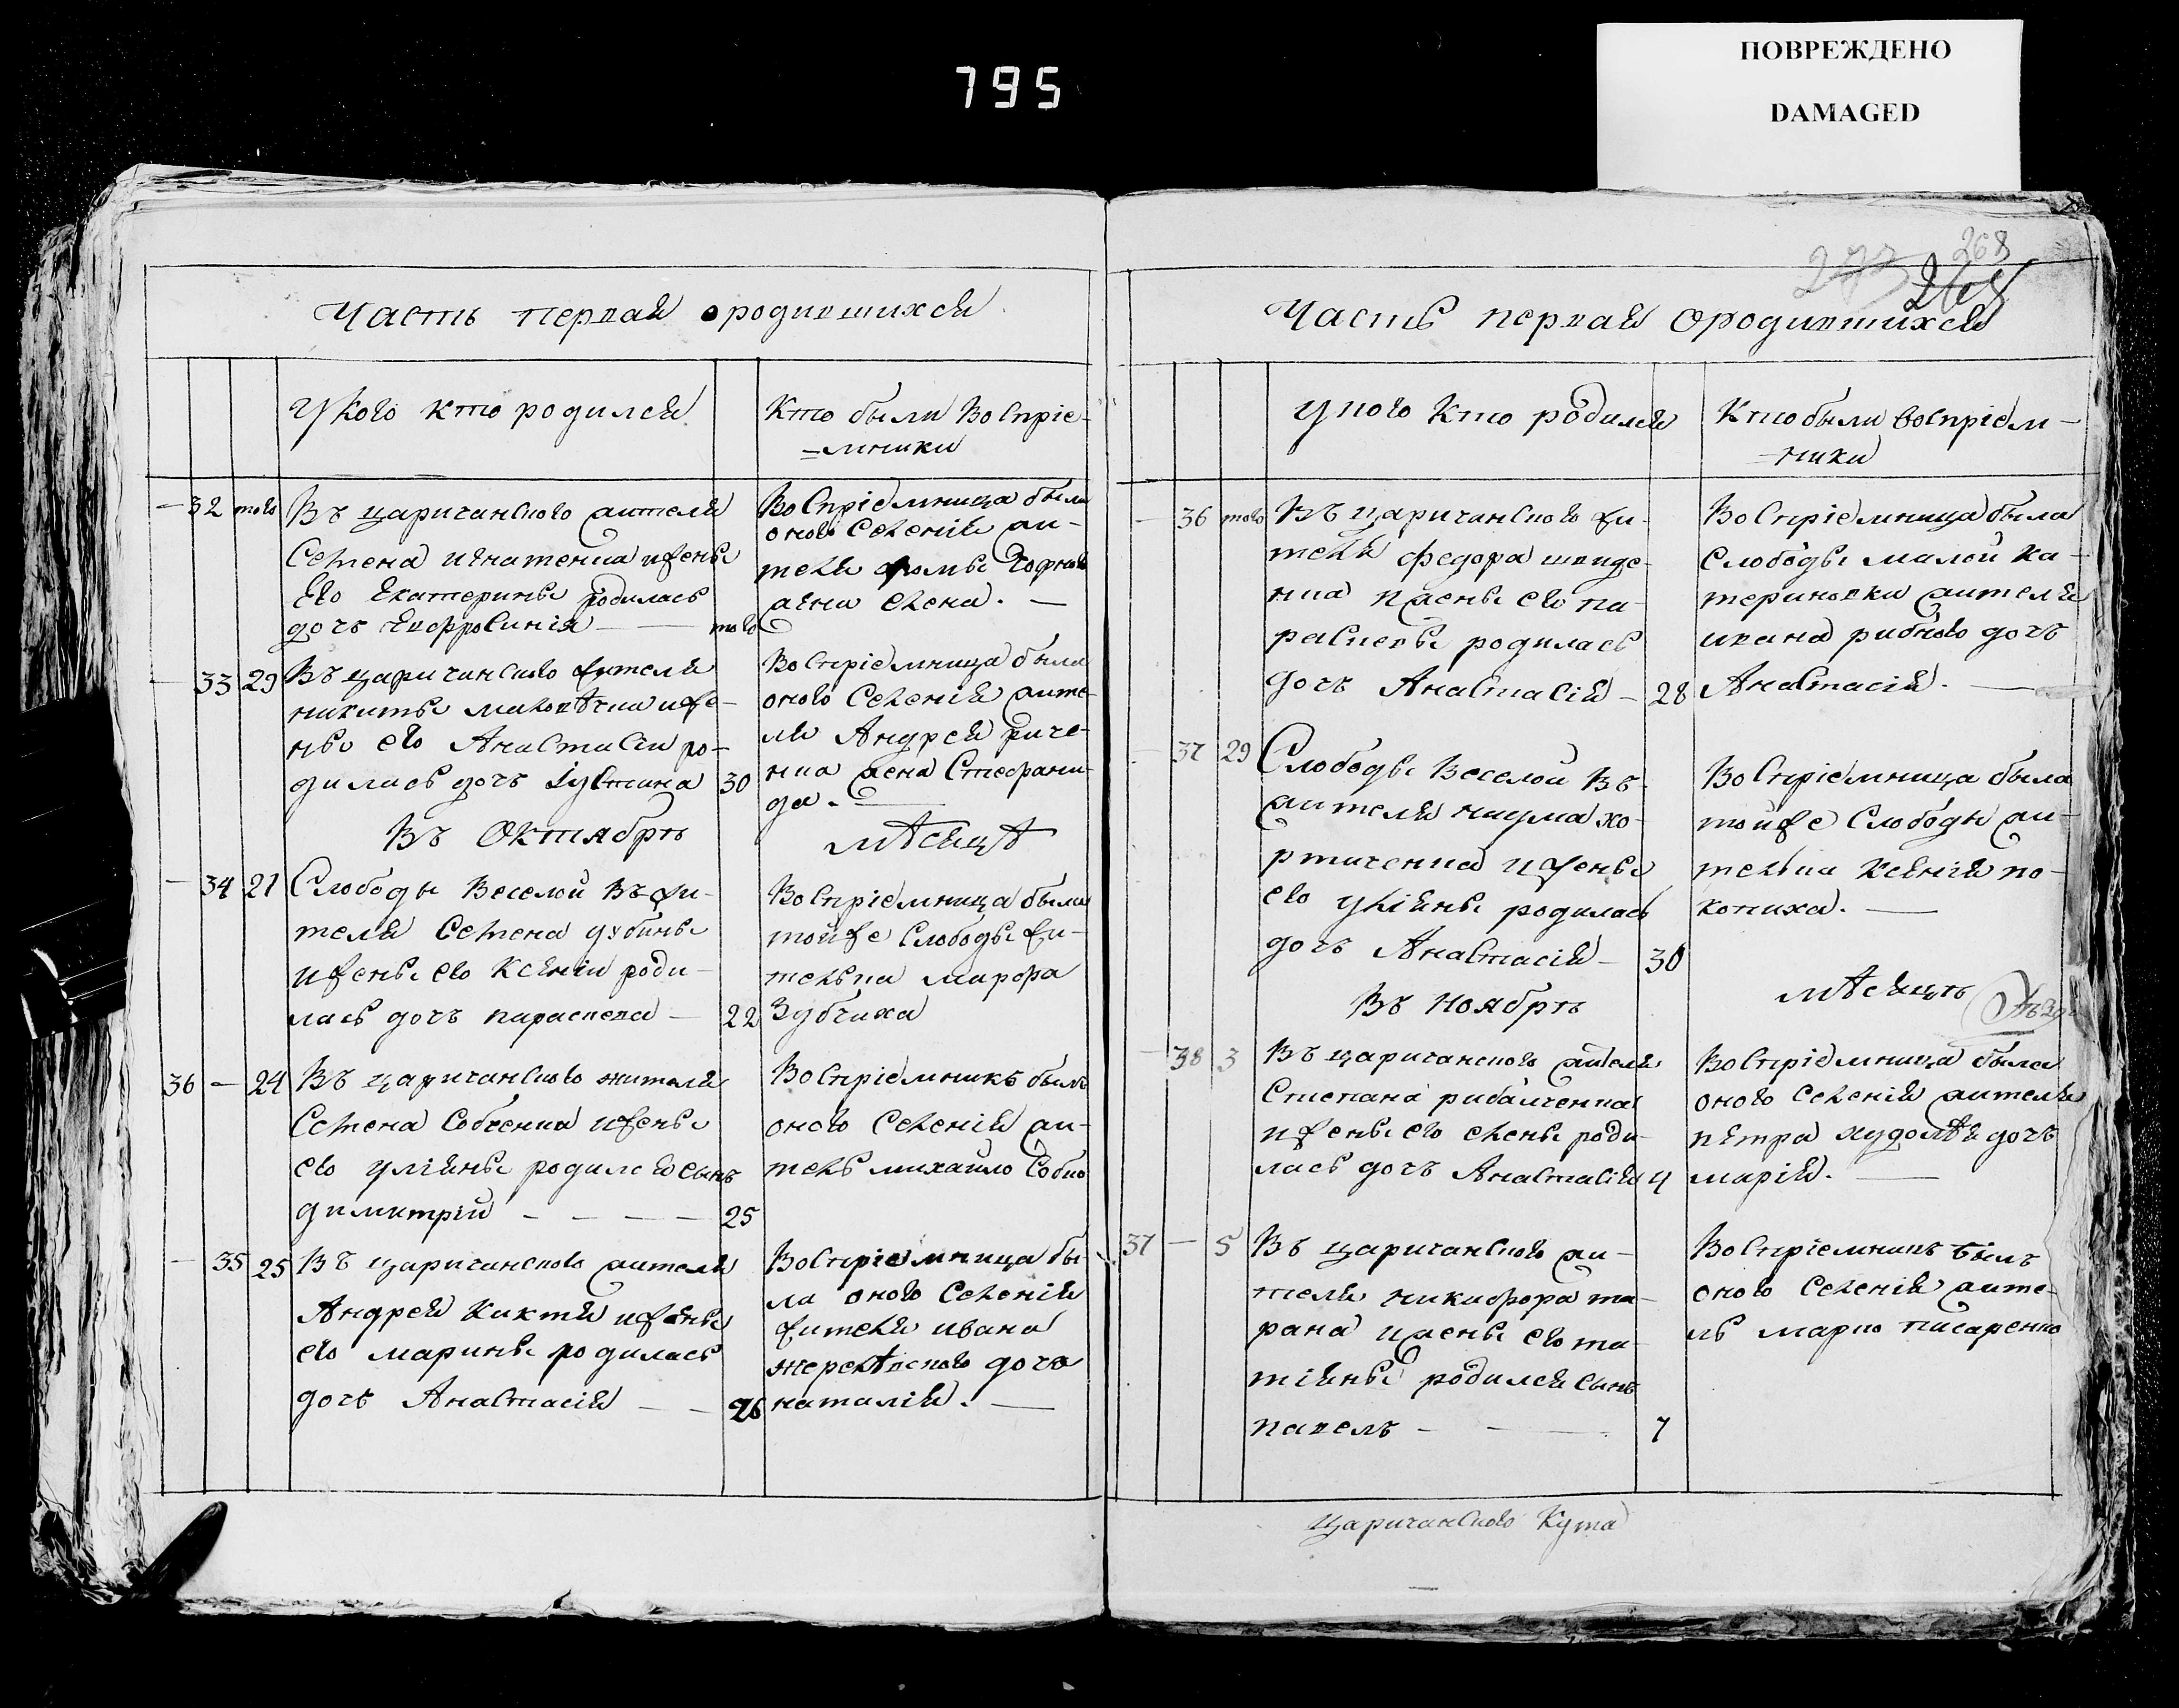 795
ПОВРЕЖДЕНО
DAMAGED
Часть первая ородившихся
Укого кто родился
Кто были Воспріе-
=мники
- 32 того Въ царичанского жителя
Семена игнатенка ижены
Его Екатерины родилась
дочь Еифросинія — того
Воспріемница была
оного Селенія жи-
теля фомы
жена Елена. —
- 33 29 Въ царичанского жителя
никиты ижe-
ны его Анастасіи ро-
дилась дочь Іустина 30
Воспріемница была
оного Селенія жите-
ля Андрея риче-
нка жена Стефани-
да. —
Въ Октябрѣ
мѣсяцѣ
- 34 21 Слободы Веселой Въ жи-
теля Семена дубины
ижены его Ксеніи роди-
лась дочь параскева — 22
Воспріемница была
тойже Слободы жи-
телька марфа
Зубчиха
36 - 24 Въ царичанского жителя
Семена Собченка ижены
его уліяны родился сынъ
димитрій - - - — 25
Воспріемникъ былъ
оного Селенія жи-
тель михайло Собко
- 35 25 Въ царичанского жителя
Андрея Киктя ижены
его марины родилась
дочь Анастасія — - 26
Воспріемница бы-
ла оного Селенія
жителя ивана
жеревского дочь
наталія. —
268
Часть первая ородившихся
укого Кто родился
Кто были Воспріем-
=ники
- 36 того Въ царичанского жи-
теля федора шведе-
нка ижены его па-
раскевы родилась
дочь Анастасія — 28
Воспріемница была
Слободы малой ка-
териновки жителя
ивана рибного дочь
Анастасія. —
- 37 29 Слободы Веселой Въ
жителя наума хо-
ртиченка ижены
его уліяны родилась
дочь Анастасія — 30
Воспріемница была
тойже Слободы жи-
телька Ксенія по-
копиха. —
Въ Ноябрѣ
мѣсяцѣ
- 38 3 Въ царичанского жителя
Степана рибалченка
ижены его елены роди-
лась дочь Анастасія 4
Воспріемница была
оного Селенія жителя
пѣтра худолѣя дочь
марія. —
37 - 5 Въ царичанского жи-
теля никифора та-
рана ижены его та-
тіяны родился сынъ
павелъ - - — 7
Воспріемникъ былъ
оного Селенія жите-
ль марко писаренко
Царичанского Кута